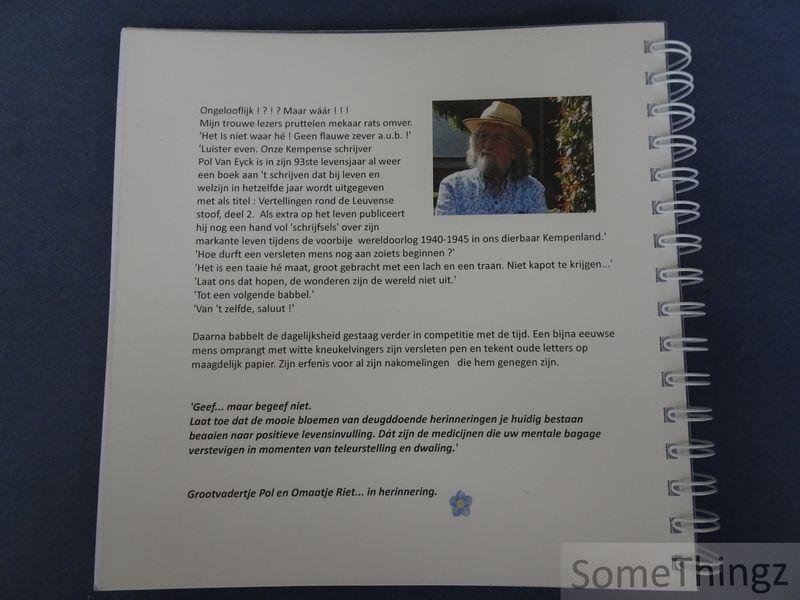 Ongelooflijk ! ? ! ? Maar wáár ! ! !
Mijn trouwe lezers pruttelen mekaar rats omver.
'Het Is niet waar hé ! Geen flauwe zever a.u.b. !'
'Luister even. Onze Kempense schrijver
Pol Van Eyck is in zijn 93ste levensjaar al weer
een boek aan 't schrijven dat bij leven en
welzijn in hetzelfde jaar wordt uitgegeven
met als titel : Vertellingen rond de Leuvense
stoof, deel 2. Als extra op het leven publiceert
hij nog een hand vol 'schrijfsels' over zijn
markante leven tijdens de voorbije wereldoorlog 1940-1945 in ons dierbaar Kempenland.'
'Hoe durft een versleten mens nog aan zoiets beginnen ?'
'Het is een taaie hé maat, groot gebracht met een lach en een traan. Niet kapot te krijgen...'
'Laat ons dat hopen, de wonderen zijn de wereld niet uit.'
'Tot een volgende babbel.'
'Van 't zelfde, saluut !'
Daarna babbelt de dagelijksheid gestaag verder in competitie met de tijd. Een bijna eeuwse
mens omprangt met witte kneukelvingers zijn versleten pen en tekent oude letters op
maagdelijk papier. Zijn erfenis voor al zijn nakomelingen die hem genegen zijn.
'Geef... maar begeef niet.
Laat toe dat de mooie bloemen van deugddoende herinneringen je huidig bestaan
beaaien naar positieve levensinvulling. Dát zijn de medicijnen die uw mentale bagage
verstevigen in momenten van teleurstelling en dwaling.'
Grootvadertje Pol en Omaatje Riet... in herinnering.
SomeThingz